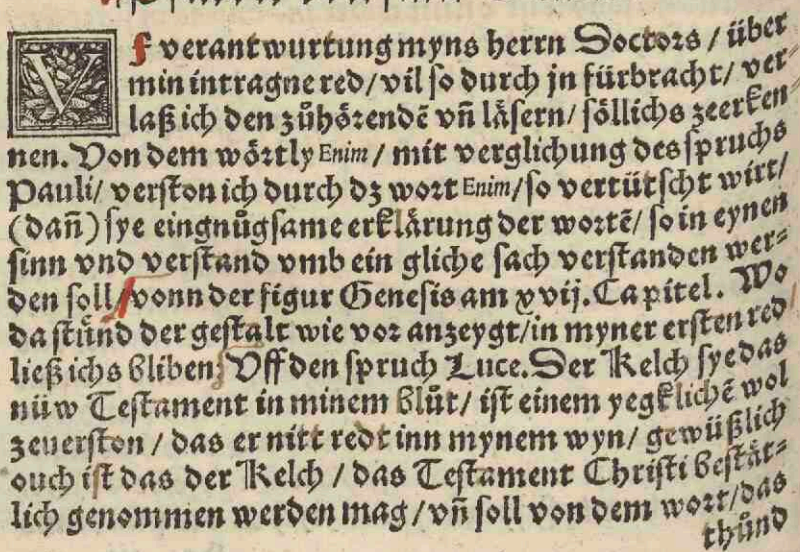 Vf verantwurtung myns herrn Doctors / über
min intragne red / vil so durch jn fürbracht / ver⸗
laß ich den zůhörendē vñ läsern / söllichs zeerken
nen. Von dem wörtly Enim / mit verglichung des spruchs
Pauli / verston ich durch dz wort Enim / so vertütscht wirt /
(dañ) sye ein gnůgsame erklärung der wortē / so in eynen
sinn vnd verstand vmb ein gliche sach verstanden wer⸗
den soll / vonn der figur Genesis am xvij. Capitel. Wo
da stůnd der gestalt wie vor anzeygt / in myner ersten red
ließ ichs bliben: Vff den spruch Luce. Der Kelch sye das
nüw Testament in minem blůt / ist einem yegklichē wol
zeuerston / das er nitt redt inn mynem wyn / gewüßlich
ouch ist das der Kelch / das Testament Christi bestät⸗
lich genommen werden mag / vñ soll von dem wort / das
thůnd